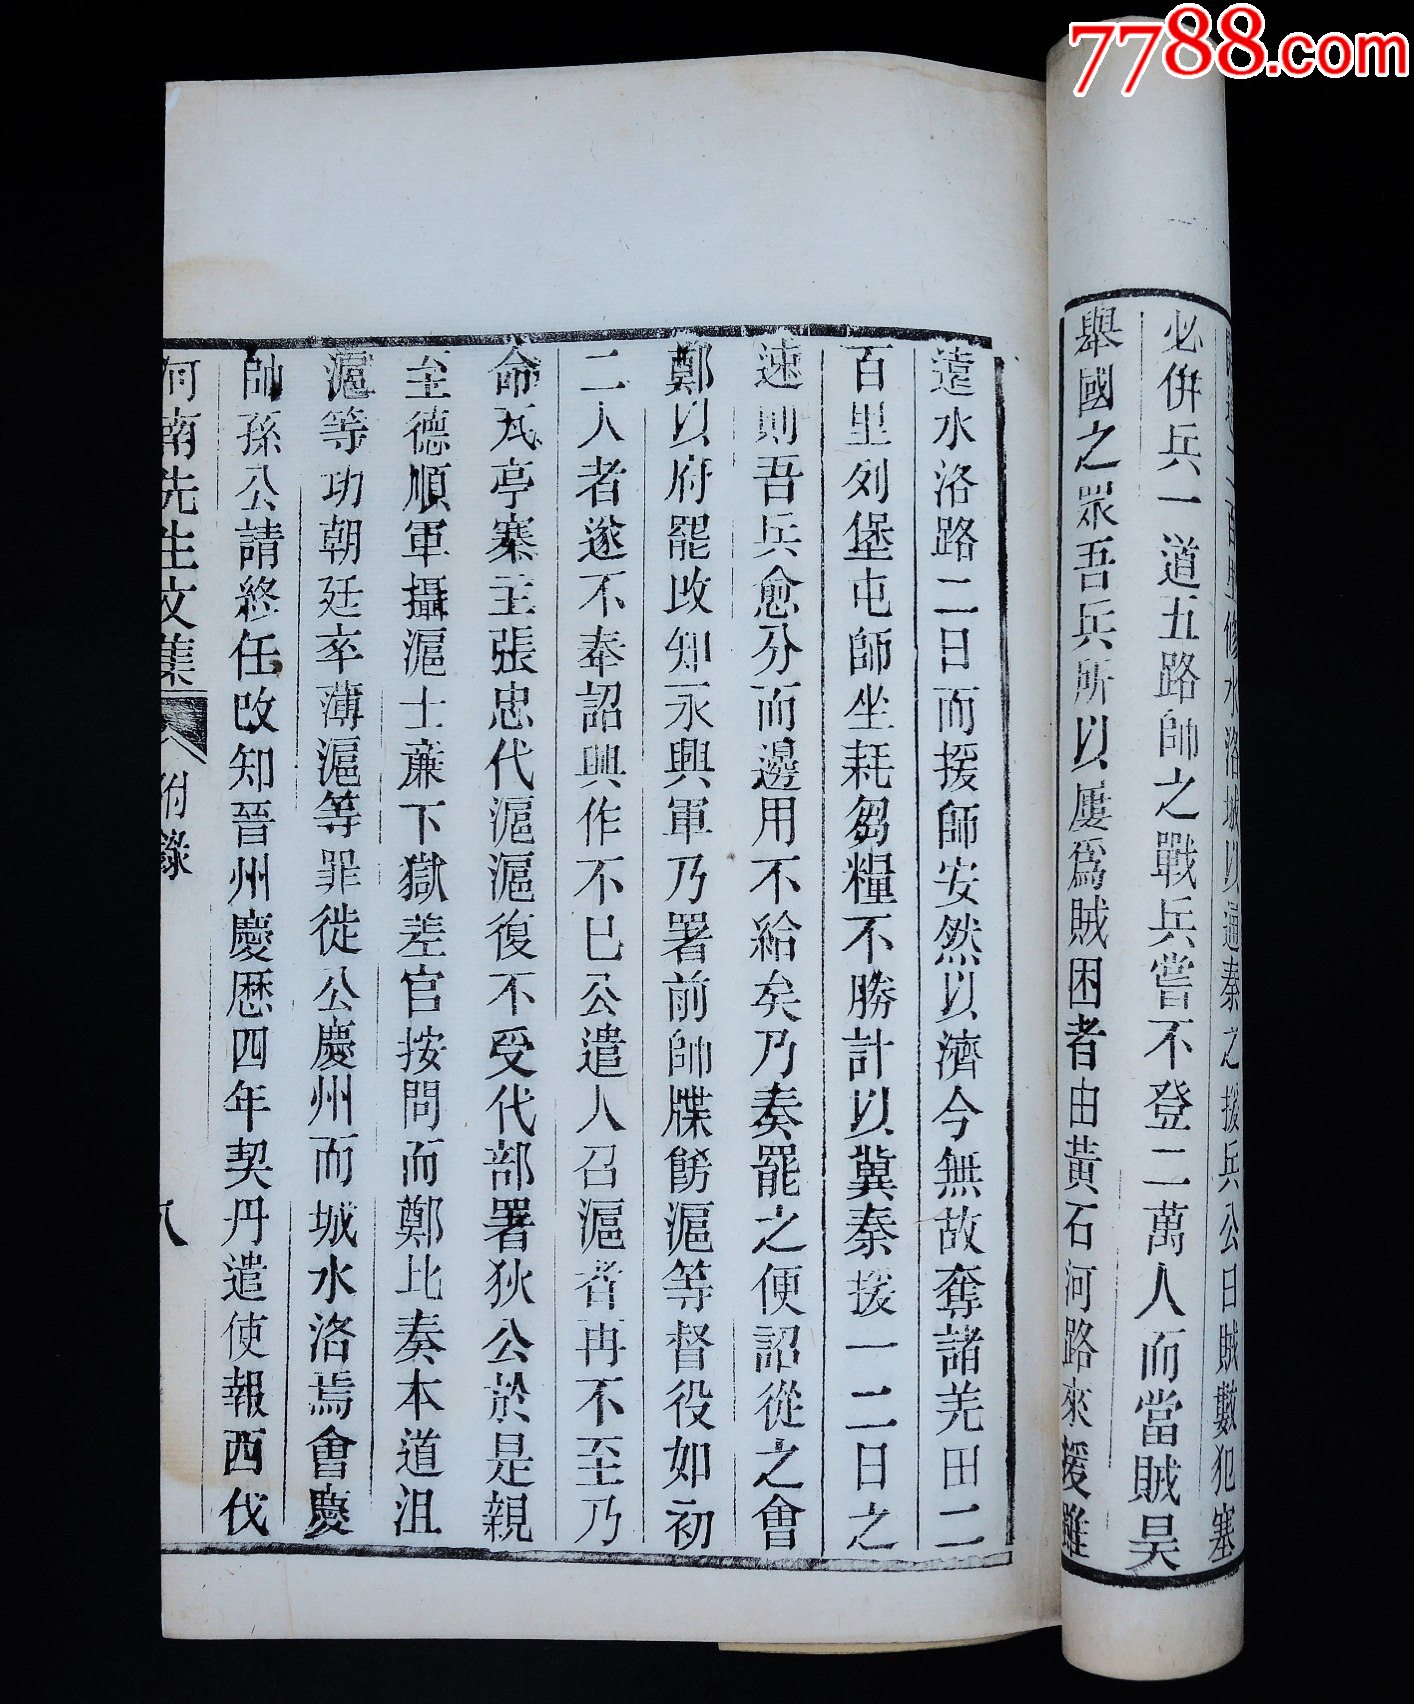 7788.com
修水洛城以通秦之援兵公曰賊數犯塞
必併兵一道五路帥之戰兵嘗不登二萬人而當賊昊
舉國之眾吾兵所以屢為賊困者由黃石河路來援雖
遠水洛路二日而援師安然以濟今無故奪諸羌田二
百里列堡屯師坐耗芻糧不勝計以冀秦援一二日之
速則吾兵愈分而邊用不給矣乃奏罷之便詔從之會
鄭以府罷改知永興軍乃署前帥牒餝滬等督役如初
二人者遂不奉詔興作不已公遣人召滬者再不至乃
命瓦亭寨主張忠代滬滬復不受代部署狄公於是親
至德順軍攝滬士廉下獄差官按問而鄭比奏本道沮
滬等功朝廷卒薄滬等罪徙公慶州而城水洛焉會慶
帥孫公請終任改知晉州慶歷四年契丹遣使報西伐
河南先生文集 附錄 八